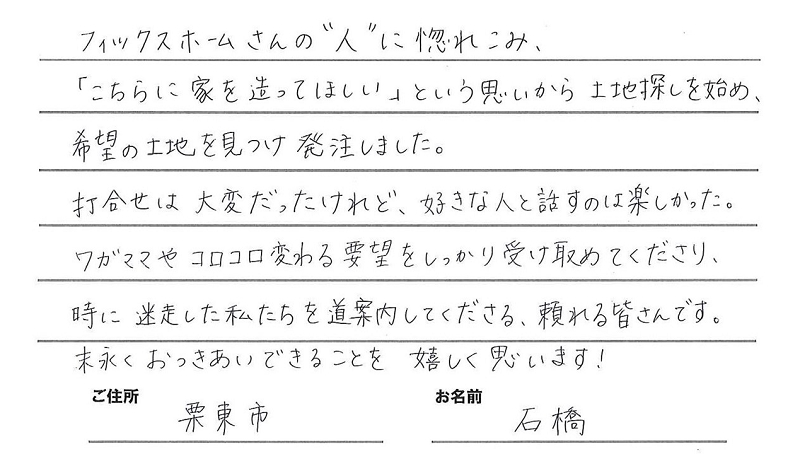 フィックスホームさんの"人"に惚れこみ、
「こちらに家を造ってほしい」という思いから土地探しを始め、
希望の土地を見つけ発注しました。
打合せは大変だったけれど、好きな人と話すのは楽しかった。
ワガママやコロコロ変わる要望をしっかり受け取めてくださり、
時に迷走した私たちを道案内してくださる、頼れる皆さんです。
末永くおつきあいできることを嬉しく思います!
ご住所 栗東市 お名前 石橋